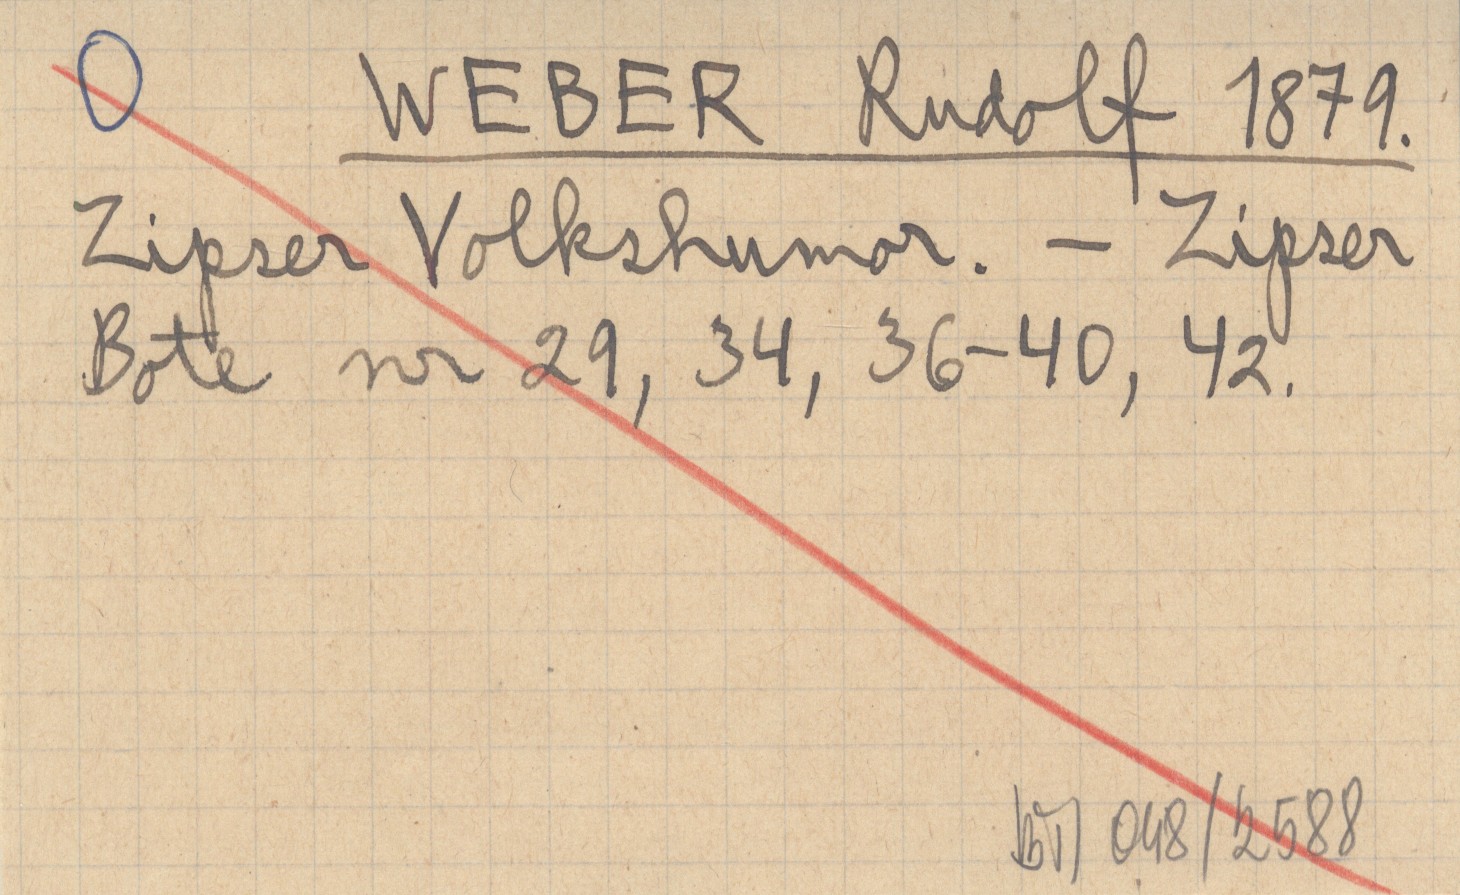 O WEBER Rudolf 1879.
Zipser Volkshumor. – Zipser
Bote nr 29, 34, 36–40, 42.
048/2588